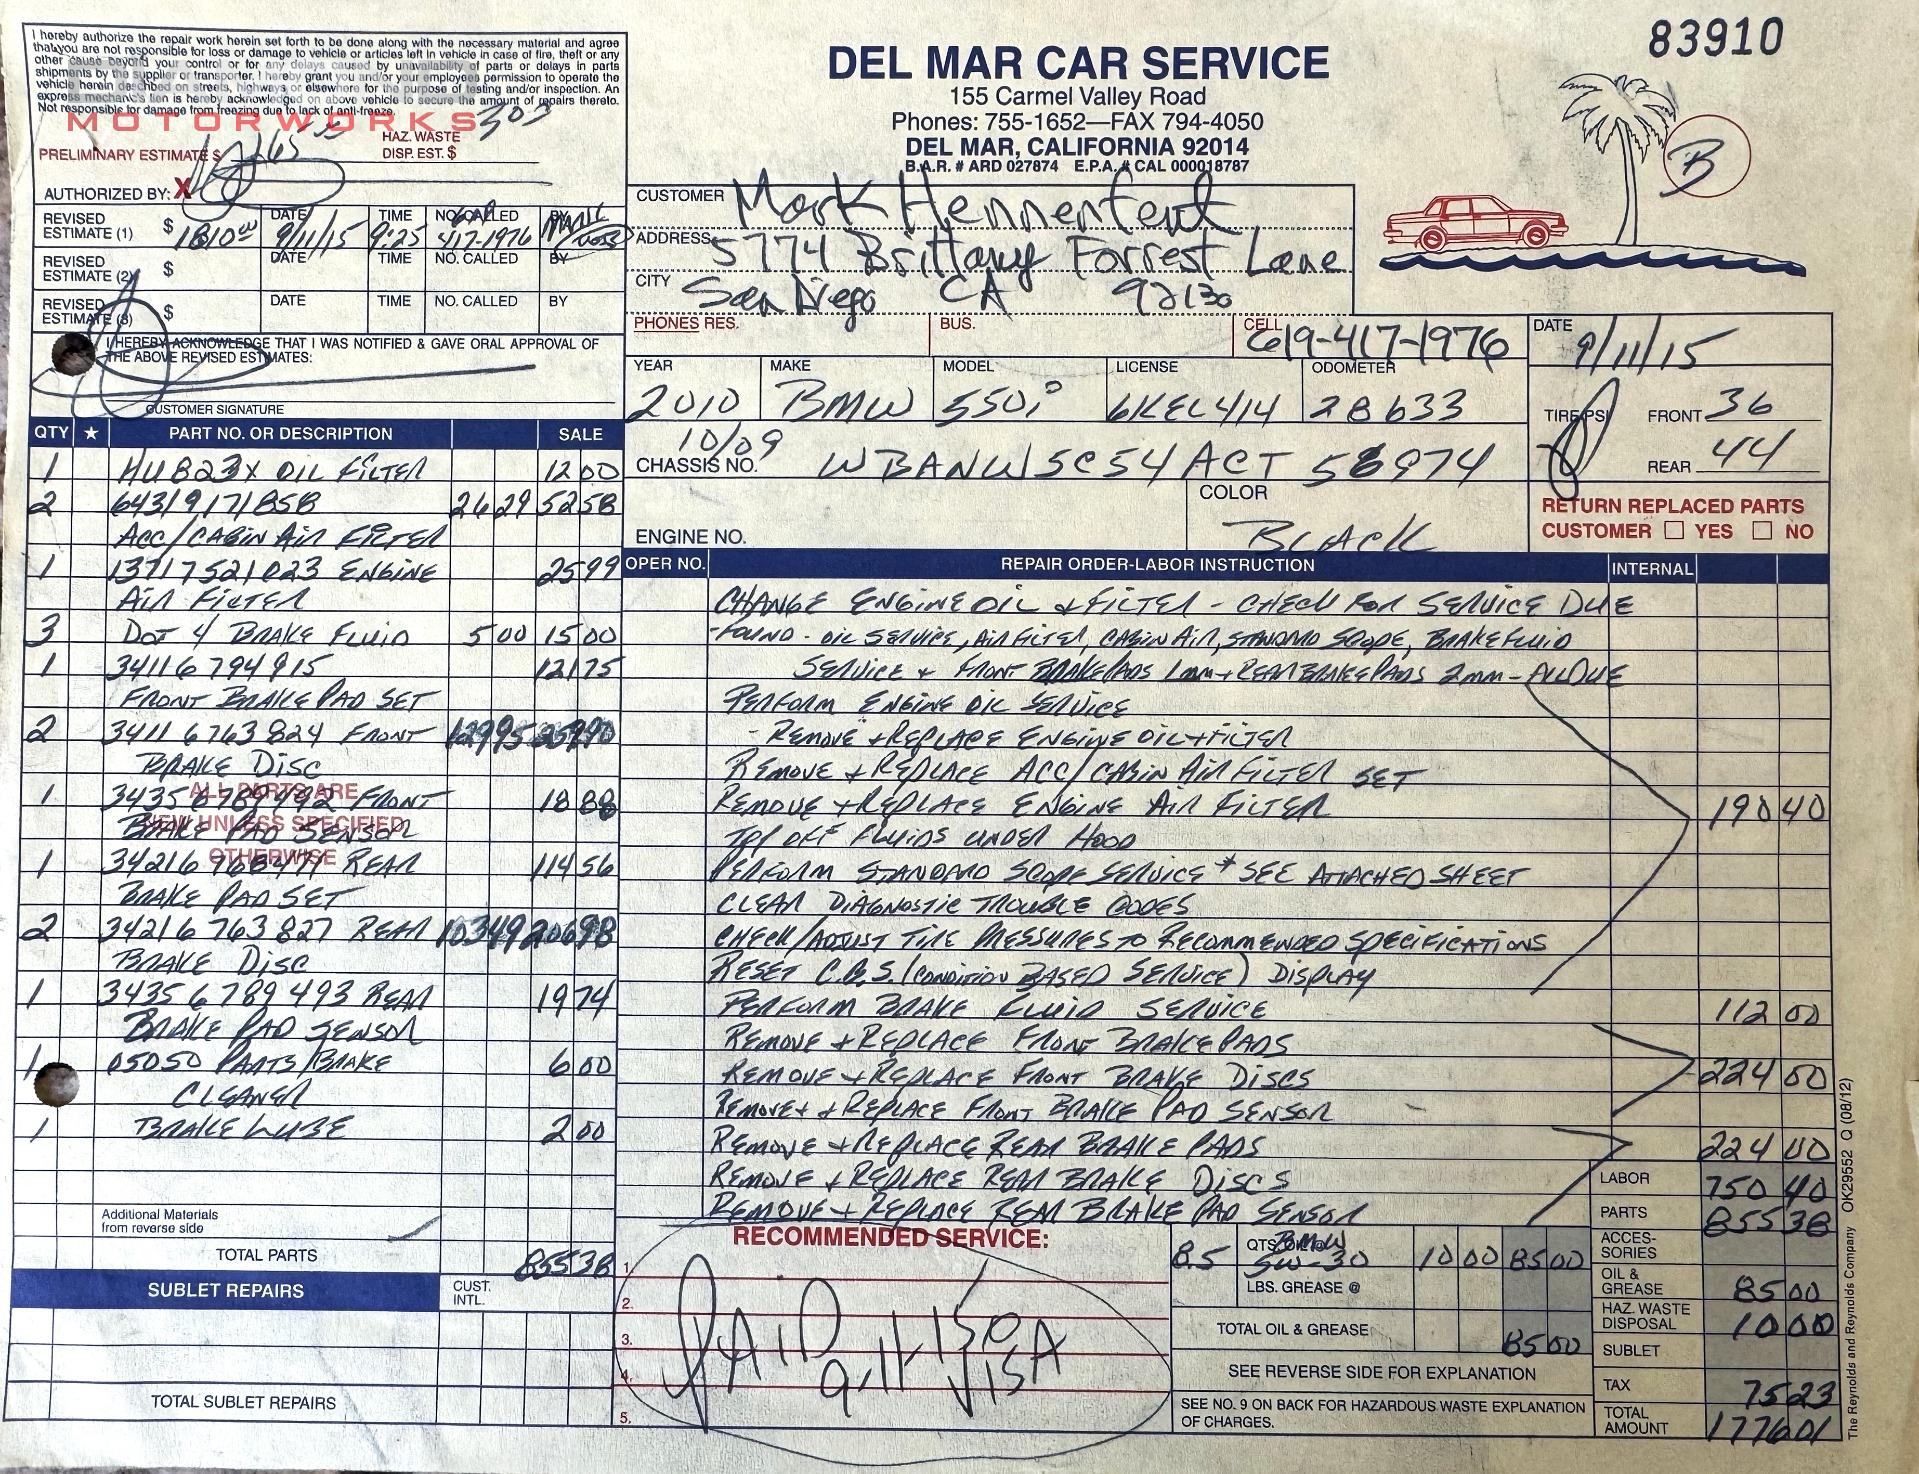 83910
I hereby authorize the repair work herein set forth to be done along with the necessary material and agree
that you are not responsible for loss or damage to vehicle or articles left in vehicle in case of fire, theft or any
other cause beyond your control or for any delays caused by unavailability of parts or delays in parts
shipments by the supplier or transporter. I hereby grant you and/or your employees permission to operate the
vehicle herein described on streets, highways or elsewhere for the purpose of testing and/or inspection. An
express mechanic's lien is hereby acknowledged on above vehicle to secure the amount of repairs thereto.
Not responsible for damage from freezing due to lack of anti-freeze.
MOTORWORKS
PRELIMINARY ESTIMATE $
HAZ. WASTE
DISP. EST. $
303
AUTHORIZED BY: X
REVISED ESTIMATE (1) $ 1810.00 DATE 9/11/15 TIME 9:25 NO. CALLED 417-1976 BY
REVISED ESTIMATE (2) $ DATE TIME NO. CALLED BY
REVISED ESTIMATE (3) $ DATE TIME NO. CALLED BY
I HEREBY ACKNOWLEDGE THAT I WAS NOTIFIED & GAVE ORAL APPROVAL OF
THE ABOVE REVISED ESTIMATES:
CUSTOMER SIGNATURE
DEL MAR CAR SERVICE
155 Carmel Valley Road
Phones: 755-1652—FAX 794-4050
DEL MAR, CALIFORNIA 92014
B.A.R. # ARD 027874 E.P.A. # CAL 000018787
B
CUSTOMER Mark Hennenfent
ADDRESS 5774 Brittany Forrest Lane
CITY San Diego CA 92130
PHONES RES. BUS. CELL 619-417-1976
DATE 9/11/15
YEAR 2010 MAKE BMW MODEL 550i LICENSE 6KEL414 ODOMETER 28633
10/09
TIRE PSI FRONT 36
REAR 44
CHASSIS NO. WBANW5C54ACT58974
COLOR BLACK
ENGINE NO.
RETURN REPLACED PARTS
CUSTOMER ☐ YES ☐ NO
QTY ★ PART NO. OR DESCRIPTION SALE
1 HU823X OIL FILTER 12 00
2 64319171858 26 29 52 58
ACC/CABIN AIR FILTER
1 13717521023 ENGINE 25 99
AIR FILTER
3 DOT 4 BRAKE FLUID 5 00 15 00
1 34116794915 121 75
FRONT BRAKE PAD SET
2 34116763824 FRONT 129 95 259 90
BRAKE DISC
1 34356789492 FRONT 18 88
BRAKE PAD SENSOR
ALL PARTS ARE
NEW UNLESS SPECIFIED
OTHERWISE
1 34216768471 REAR 114 56
BRAKE PAD SET
2 34216763827 REAR 103 49 206 98
BRAKE DISC
1 34356789493 REAR 19 74
BRAKE PAD SENSOR
1 05050 PARTS/BRAKE 6 00
CLEANER
1 BRAKE LUBE 2 00
Additional Materials
from reverse side
TOTAL PARTS 855 38
SUBLET REPAIRS CUST. INTL.
TOTAL SUBLET REPAIRS
OPER NO. REPAIR ORDER-LABOR INSTRUCTION INTERNAL
CHANGE ENGINE OIL & FILTER - CHECK FOR SERVICE DUE
-FOUND - OIL SERVICE, AIR FILTER, CABIN AIR, STANDARD SCOPE, BRAKE FLUID
SERVICE & FRONT BRAKE PADS 1mm + REAR BRAKE PADS 2mm - ALL DUE
PERFORM ENGINE OIL SERVICE
- REMOVE + REPLACE ENGINE OIL + FILTER
REMOVE + REPLACE ACC/CABIN AIR FILTER SET
REMOVE + REPLACE ENGINE AIR FILTER 190 40
TOP OFF FLUIDS UNDER HOOD
PERFORM STANDARD SCOPE SERVICE * SEE ATTACHED SHEET
CLEAR DIAGNOSTIC TROUBLE CODES
CHECK/ADJUST TIRE PRESSURES TO RECOMMENDED SPECIFICATIONS
RESET C.B.S. (CONDITION BASED SERVICE) DISPLAY
PERFORM BRAKE FLUID SERVICE 112 00
REMOVE + REPLACE FRONT BRAKE PADS
REMOVE + REPLACE FRONT BRAKE DISCS 224 00
REMOVE + REPLACE FRONT BRAKE PAD SENSOR
REMOVE + REPLACE REAR BRAKE PADS 224 00
REMOVE + REPLACE REAR BRAKE DISCS
REMOVE + REPLACE REAR BRAKE PAD SENSOR
RECOMMENDED SERVICE:
1.
2.
3.
4.
5.
PAID
9-11-15
VISA
8.5 QTS. OIL @ BMW 5W-30 10 00 85 00
LBS. GREASE @
TOTAL OIL & GREASE 85 00
SEE REVERSE SIDE FOR EXPLANATION
SEE NO. 9 ON BACK FOR HAZARDOUS WASTE EXPLANATION
OF CHARGES.
LABOR 750 40
PARTS 855 38
ACCESSORIES
OIL & GREASE 85 00
HAZ. WASTE DISPOSAL 10 00
SUBLET
TAX 75 23
TOTAL AMOUNT 1776 01
The Reynolds and Reynolds Company OK29552 Q (08/12)